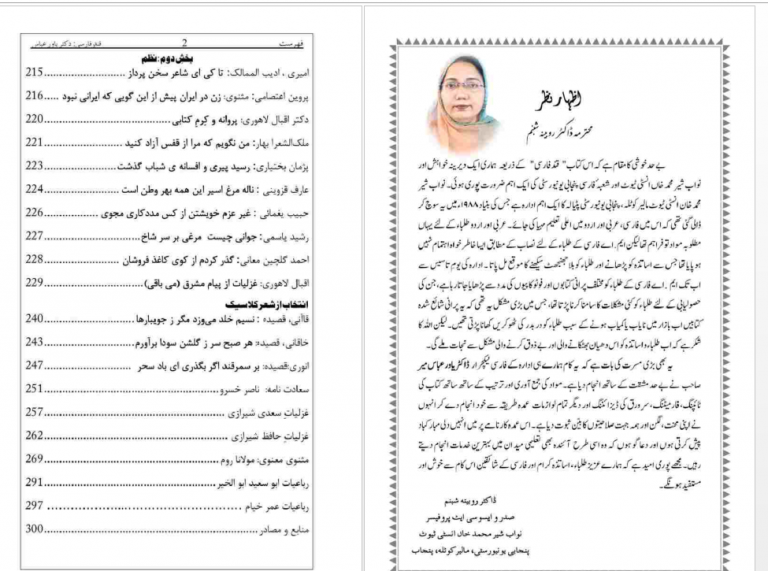 اظہارِ نظر
محترمہ ڈاکٹر روبینہ شبنم
بے حد خوشی کا مقام ہے کہ اس کتاب "قند فارسی" کے ذریعہ ہماری ایک دیرینہ خواہش اور
نواب شیر محمد خاں انسٹی ٹیوٹ اور شعبۂ فارسی پنجابی یونیورسٹی کی ایک اہم ضرورت پوری ہوئی۔ نواب شیر
محمد خان انسٹی ٹیوٹ مالیر کوٹلہ، پنجابی یونیورسٹی پٹیالہ کا ایک اہم ادارہ ہے جس کی بنیاد ۱۹۸۸ء میں یہ سوچ کر
ڈالی گئی تھی کہ اس میں فارسی، عربی اور اردو میں اعلی تعلیم مہیا کی جائے۔ عربی اور اردو طلباء کے لئے یہاں
مطلوبہ مواد تو فراہم تھا لیکن ایم۔اے فارسی کے طلباء کے لئے نصاب کے مطابق ایسا خاطر خواہ اہتمام نہیں
ہو پایا تھا جس سے اساتذہ کو پڑھانے اور طلباء کو بلا جھنجھٹ سیکھنے کا موقع مل پاتا۔ ادارہ کی یوم تاسیس سے
اب تک ایم۔اے فارسی کے طلباء کو مختلف پرانی کتابوں اور فوٹو کاپیوں کی مدد سے پڑھایا جاتا رہا ہے، جن کی
حصولیابی کے لئے طلباء کو کئی مشکلات کا سامنا کرنا پڑتا تھا، جس میں بڑی مشکل یہ تھی کہ یہ پرانی شائع شدہ
کتابیں اب بازار میں نایاب یا کمیاب ہونے کے سبب طلباء کو در بدر کی ٹھوکریں کھانا پڑتی تھیں۔ لیکن اللہ کا
شکر ہے کہ اب طلباء و اساتذہ کو اس دھیان بھٹکانے والی اور بے ذوق کرنے والی مشکل سے نجات ملے گی۔
یہ بھی بڑی مسرت کی بات ہے کہ یہ کام ہمارے ہی ادارہ کے فارسی لیکچرار ڈاکٹر یاور عباس میر
صاحب نے بے حد مشقت کے ساتھ انجام دیا ہے۔ مواد کی جمع آوری اور ترتیب کے ساتھ ساتھ کتاب کی
ٹائپنگ، فارمیٹنگ، سرورق کی ڈیزائننگ اور دیگر تمام لوازمات عمدہ طریقہ سے خود انجام دے کر انہوں
نے اپنی محنت، لگن اور ہمہ جہت صلاحیتوں کا بیّن ثبوت دیا ہے۔ اس عمدہ کارنامے پر میں انہیں دلی مبارکباد
پیش کرتی ہوں اور دعا گو ہوں کہ وہ اسی طرح آئندہ بھی تعلیمی میدان میں بہترین خدمات انجام دیتے
رہیں۔ مجھے پوری امید ہے کہ ہمارے عزیز طلباء، اساتذہ کرام اور فارسی کے شائقین اس کام سے خوش اور
مستفید ہونگے۔
ڈاکٹر روبینہ شبنم
صدر و ایسوسی ایٹ پروفیسر
نواب شیر محمد خاں انسٹی ٹیوٹ
پنجابی یونیورسٹی، مالیر کوٹلہ، پنجاب
فہرست 2 قندِ فارسی: دکتر یاور عباس
بخش دوم: نظم
امیری، ادیب الممالک: تا کی ای شاعر سخن پرداز ....215
پروین اعتصامی: مثنوی: زن در ایران پیش از این گویی که ایرانی نبود ....216
دکتر اقبال لاهوری: پروانه و کرم کتابی ....220
ملک‌الشعرا بهار: من نگویم که مرا از قفس آزاد کنید ....221
پژمان بختیاری: رسید پیری و افسانه ی شباب گذشت ....223
عارف قزوینی: ناله مرغ اسیر این همه بهر وطن است ....224
حبیب یغمائی: غیر عزم خویشتن از کس مددکاری مجوی ....226
رشید یاسمی: جوانی چیست مرغی بر سر شاخ ....227
احمد گلچین معانی: گذر کردم از کوی کاغذ فروشان ....228
اقبال لاهوری: غزلیات از پیام مشرق (می باقی) ....229
انتخاب از شعر کلاسیک
قاآنی، قصیده: نسیم خلد می‌وزد مگر ز جویبارها ....240
خاقانی، قصیده: هر صبح سر ز گلشن سودا برآورم ....243
انوری: قصیده: بر سمرقند اگر بگذری ای باد سحر ....247
سعادت نامه: ناصر خسرو ....251
غزلیات سعدی شیرازی ....257
غزلیات حافظ شیرازی ....262
مثنوی معنوی: مولانا روم ....269
رباعیات ابو سعید ابو الخیر ....291
رباعیات عمر خیام ....297
منابع و مصادر ....300